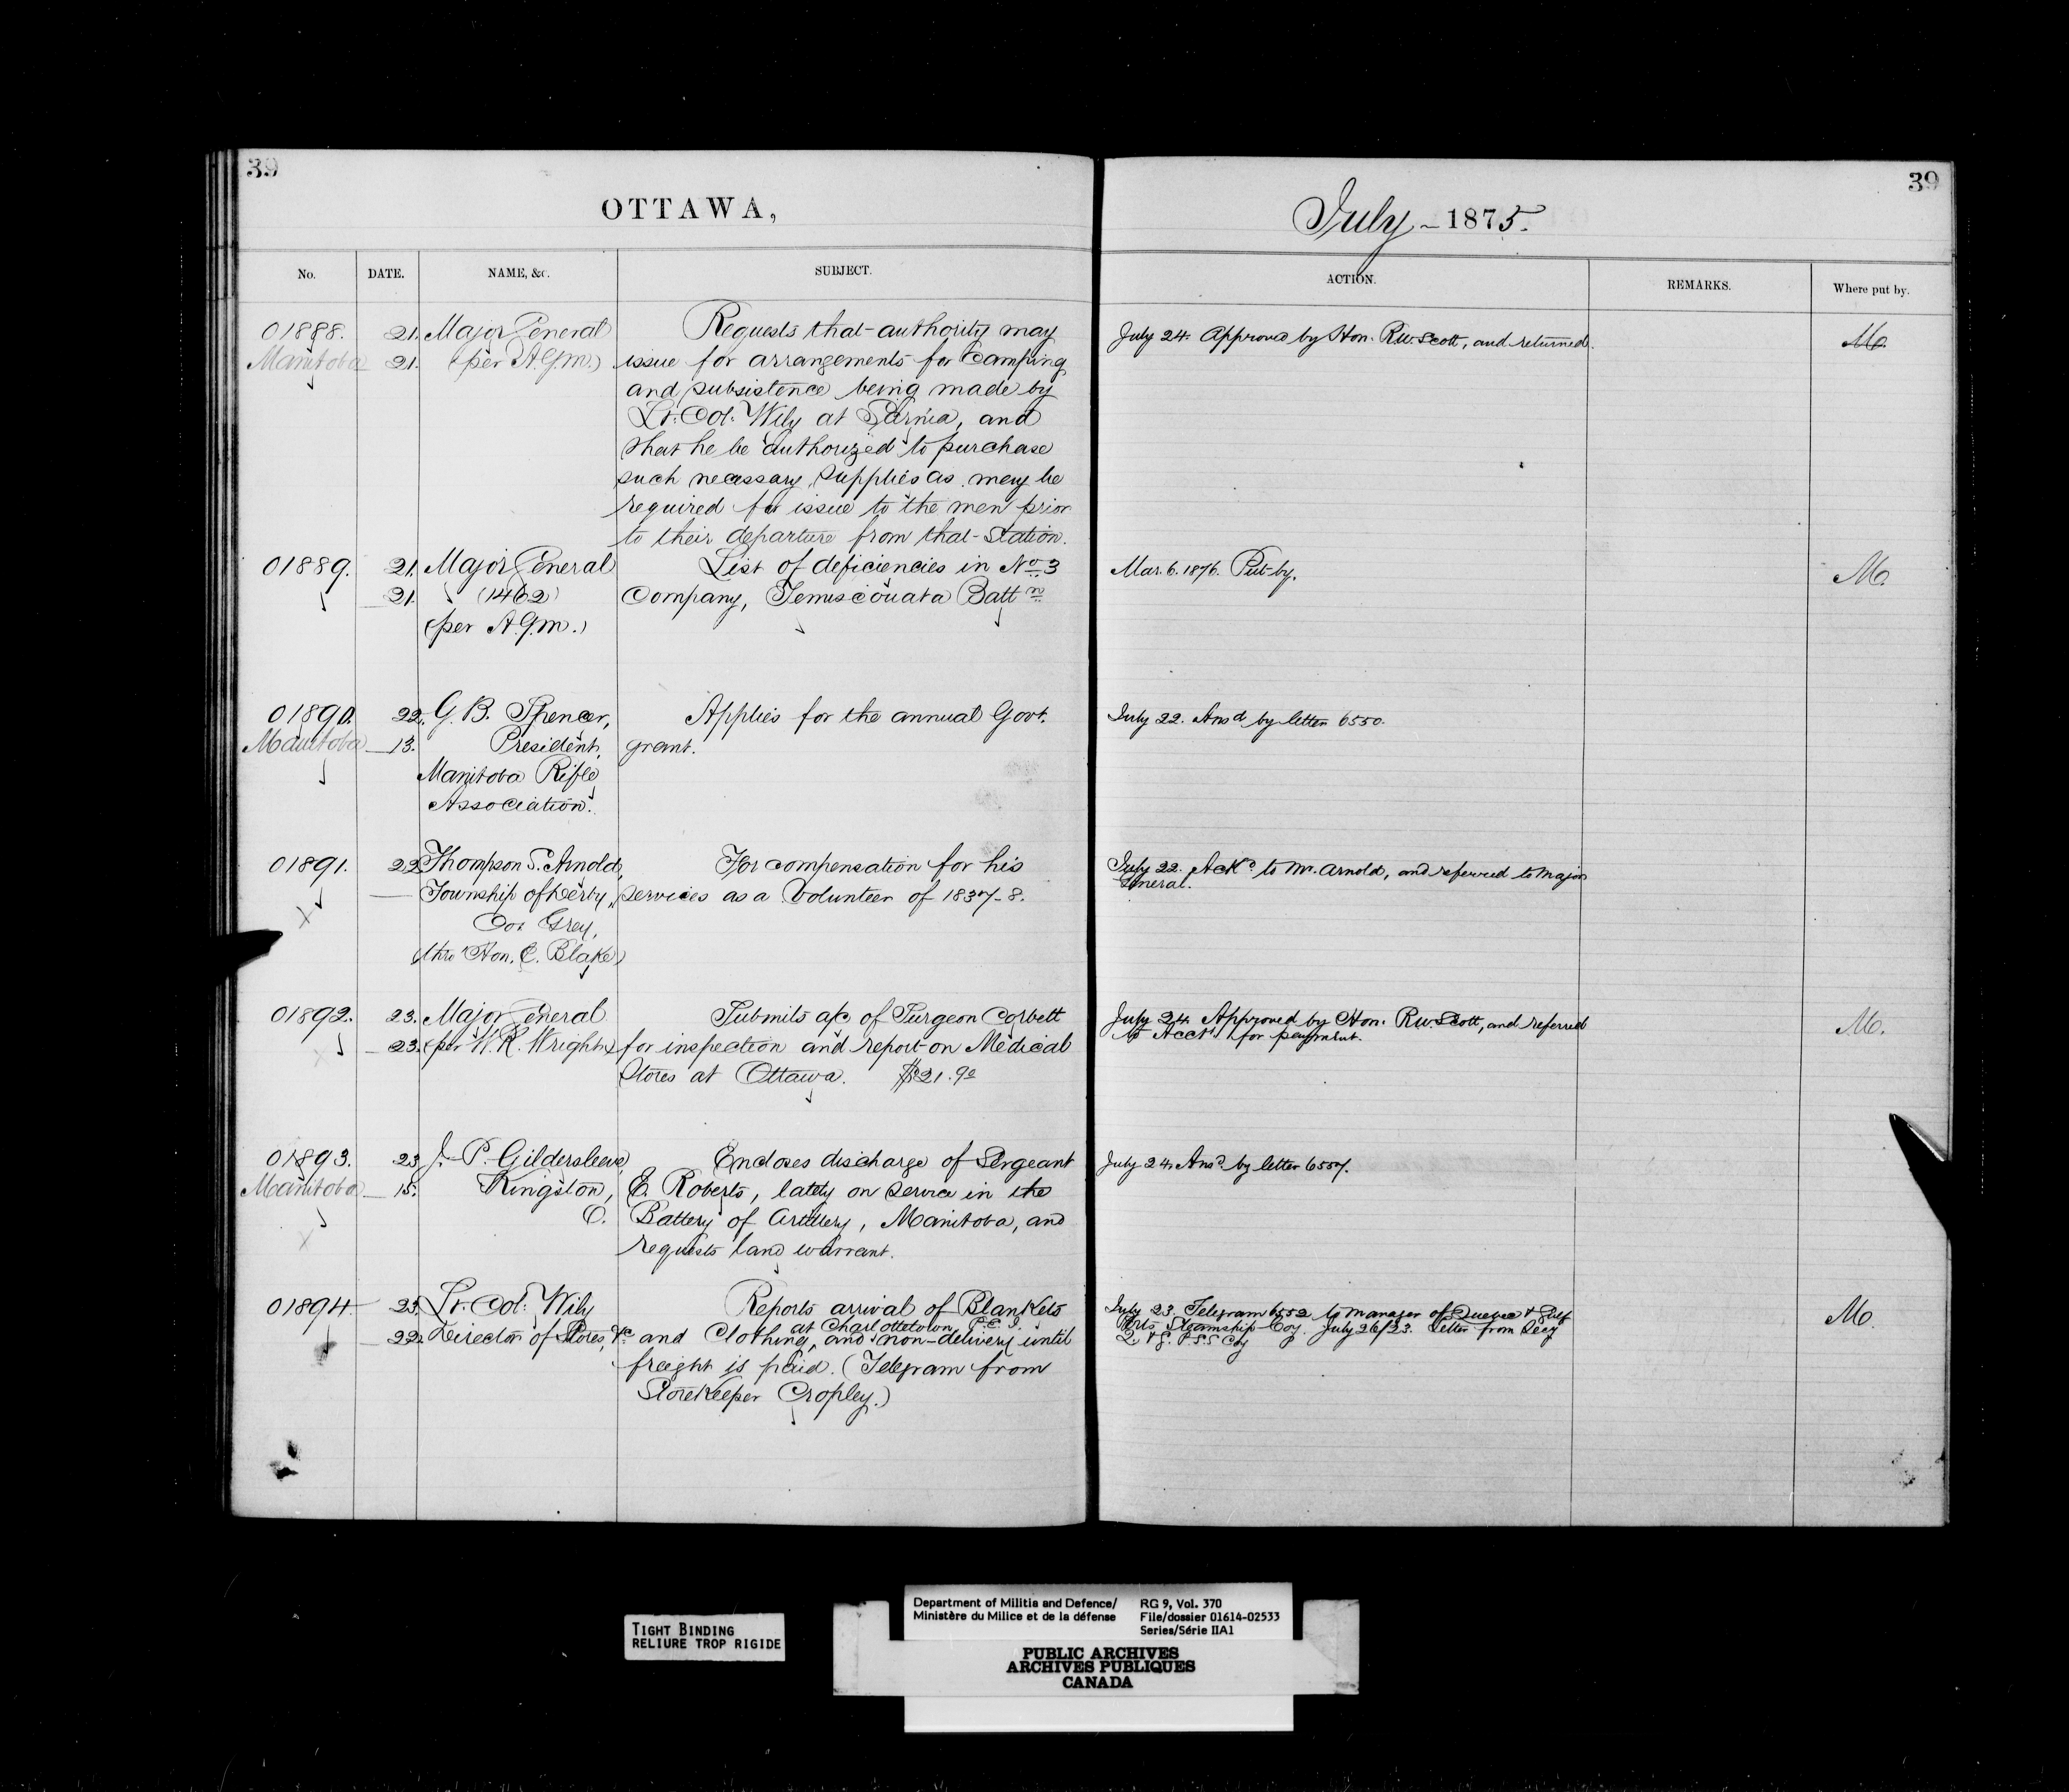 39
OTTAWA,
No.
DATE.
NAME, &c.
SUBJECT.
01888.
Manitoba
21.
21.
Major General
(per A.G.M.)
Requests that authority may
issue for arrangements for Camping
and subsistence being made by
Lt. Col. Wily at Sarnia, and
that he be authorized to purchase
such necessary supplies as may be
required for issue to the men prior
to their departure from that Station.
01889.
21.
21.
Major General
(1462)
(per A.G.M.)
List of deficiencies in No. 3
Company, Temiscouata Battn
01890.
Manitoba
22.
13.
G. B. Spencer,
President,
Manitoba Rifle
Association.
Applies for the annual Govt.
grant.
01891.
22
Thompson S. Arnold,
Township of Derby,
Co. Grey,
(thro' Hon. E. Blake)
For compensation for his
services as a Volunteer of 1837-8.
01892.
23.
23.
Major General
(per W. R. Wright)
Submits a/c of Surgeon Corbett
for inspection and report on Medical
Stores at Ottawa. $21.90
01893.
Manitoba
23
15.
J. P. Gildersleeve,
Kingston,
O.
Encloses discharge of Sergeant
E. Roberts, lately on service in the
Battery of Artillery, Manitoba, and
requests land warrant.
01894
23.
22.
Lt. Col. Wily
Director of Stores, &c
Reports arrival of Blankets
at Charlottetown P.E.I.
and Clothing, and non-delivery until
freight is paid. (Telegram from
Storekeeper Cropley.)
39
July - 1875.
ACTION.
REMARKS.
Where put by.
July 24. Approved by Hon. R.W. Scott, and returned.
Mo.
Mar. 6. 1876. Put by.
Mo.
July 22. Ansd by letter 6550.
July 22. Ackd to Mr. Arnold, and referred to Major
General.
July 24. Approved by Hon. R.W. Scott, and referred
to Acct for payment.
Mo.
July 24. Ansd by letter 6557.
July 23. Telegram 6552 to Manager of Quebec & Gulf
Ports Steamship Coy. July 26/23. Letter from Secy
Q. & G. P. S.S Coy
Mo.
TIGHT BINDING
RELIURE TROP RIGIDE
Department of Militia and Defence/
Ministère du Milice et de la défense
RG 9, Vol. 370
File/dossier 01614-02533
Series/Série IIA1
PUBLIC ARCHIVES
ARCHIVES PUBLIQUES
CANADA